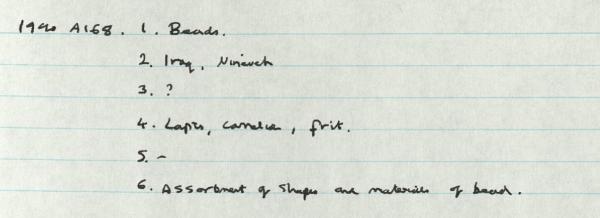 1990 A168. 1. Beads.
2. Iraq, Nineveh
3. ?
4. Lapis, carnelian, frit.
5. -
6. Assortment of shapes and materials of bead.